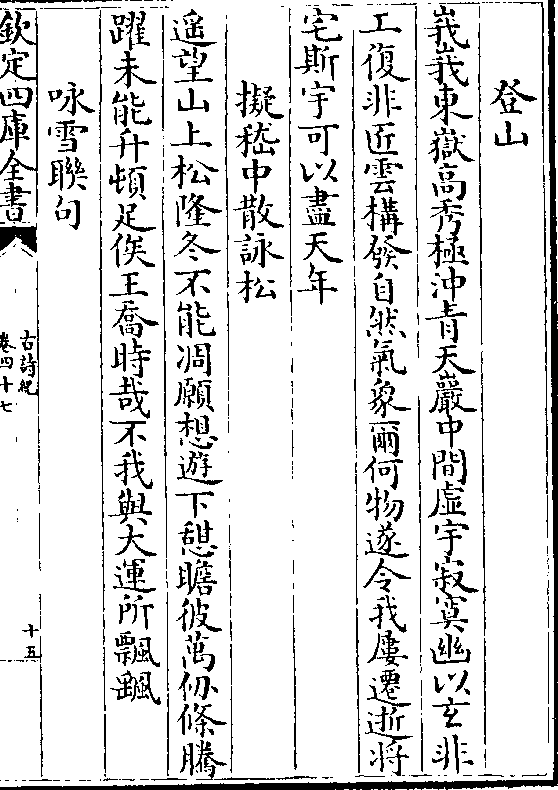 登山
峩峩東嶽高秀極沖青天巖中間虛宇寂寞幽以玄非
工復非匠雲構發自然氣象爾何物遂令我屢遷逝將
宅斯宇可以盡天年
擬嵇中散詠松
遥望山上松隆冬不能凋願想遊下憇瞻彼萬仞條騰
躍未能升頓足俟王喬時哉不我與大運所飄颻
咏雪聯句
欽定四庫全書
古詩紀
卷四十七
十五